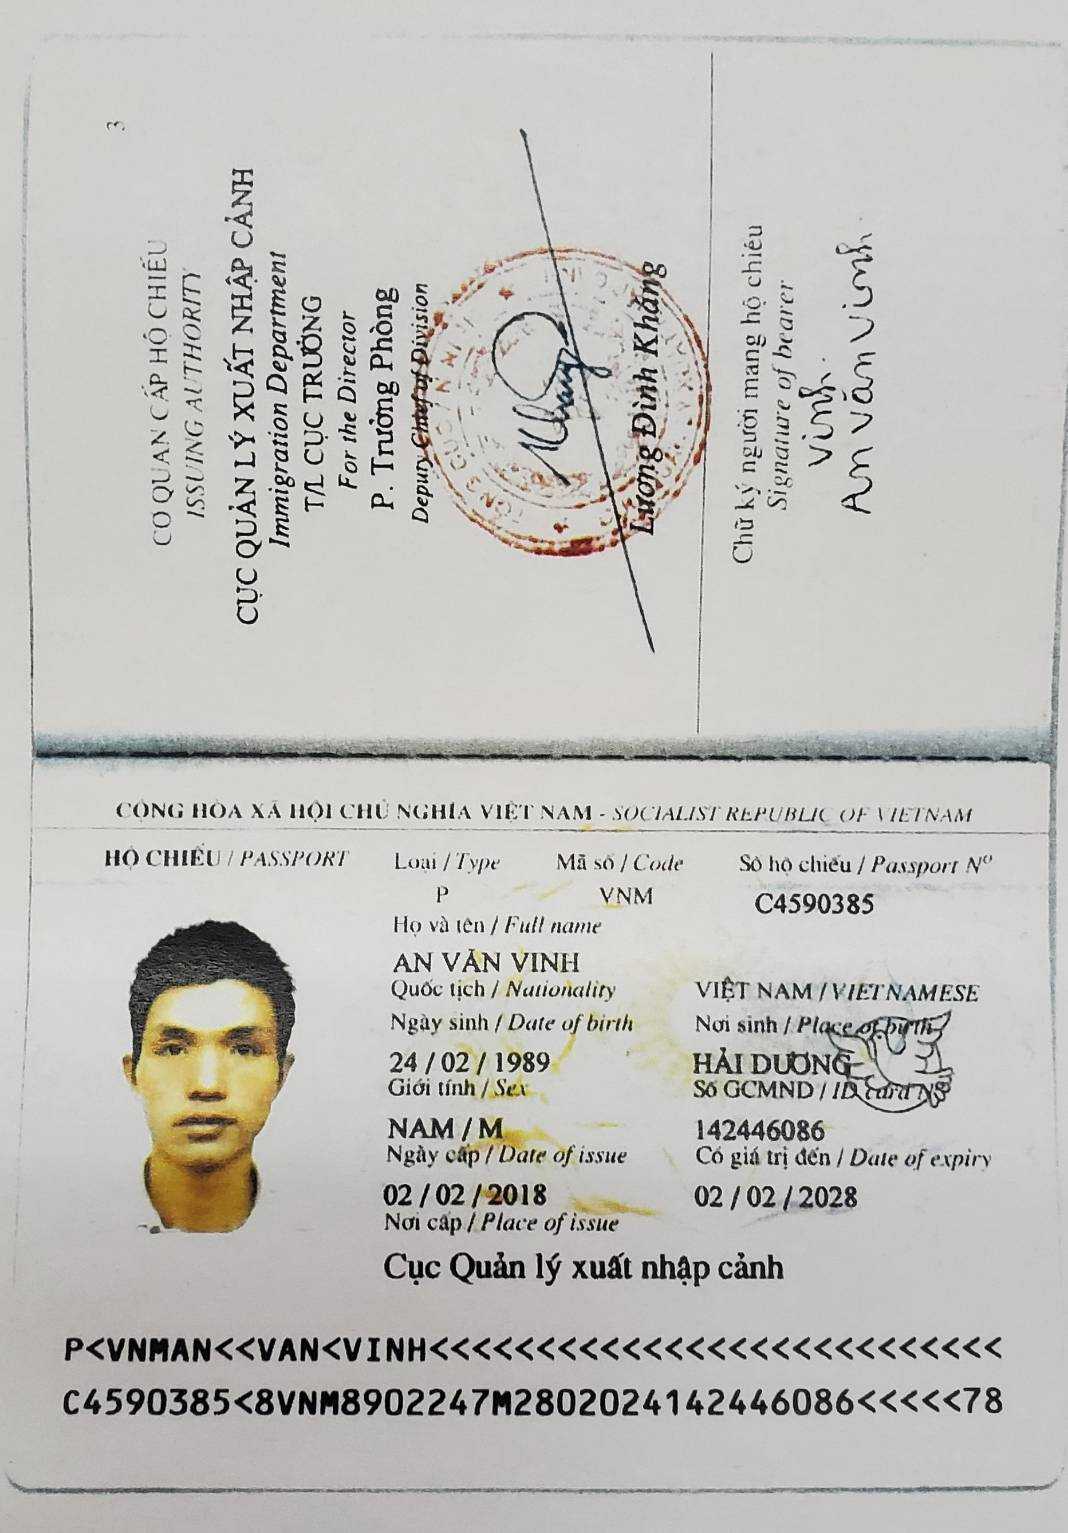 3
CƠ QUAN CẤP HỘ CHIẾU
ISSUING AUTHORITY
CỤC QUẢN LÝ XUẤT NHẬP CẢNH
Immigration Department
T/L CỤC TRƯỞNG
For the Director
P. Trưởng Phòng
Deputy Chief of Division
Lương Đình Khảng
Chữ ký người mang hộ chiếu
Signature of bearer
Vinh
An Văn Vinh
CỘNG HÒA XÃ HỘI CHỦ NGHĨA VIỆT NAM - SOCIALIST REPUBLIC OF VIETNAM
HỘ CHIẾU / PASSPORT Loại / Type Mã số / Code Số hộ chiếu / Passport Nº
P VNM C4590385
Họ và tên / Full name
AN VĂN VINH
Quốc tịch / Nationality VIỆT NAM / VIETNAMESE
Ngày sinh / Date of birth Nơi sinh / Place of birth
24 / 02 / 1989 HẢI DƯƠNG
Giới tính / Sex Số GCMND / ID card Nº
NAM / M 142446086
Ngày cấp / Date of issue Có giá trị đến / Date of expiry
02 / 02 / 2018 02 / 02 / 2028
Nơi cấp / Place of issue
Cục Quản lý xuất nhập cảnh
P<VNMAN<<VAN<VINH<<<<<<<<<<<<<<<<<<<<<<<<<<<
C4590385<8VNM8902247M2802024142446086<<<<<78